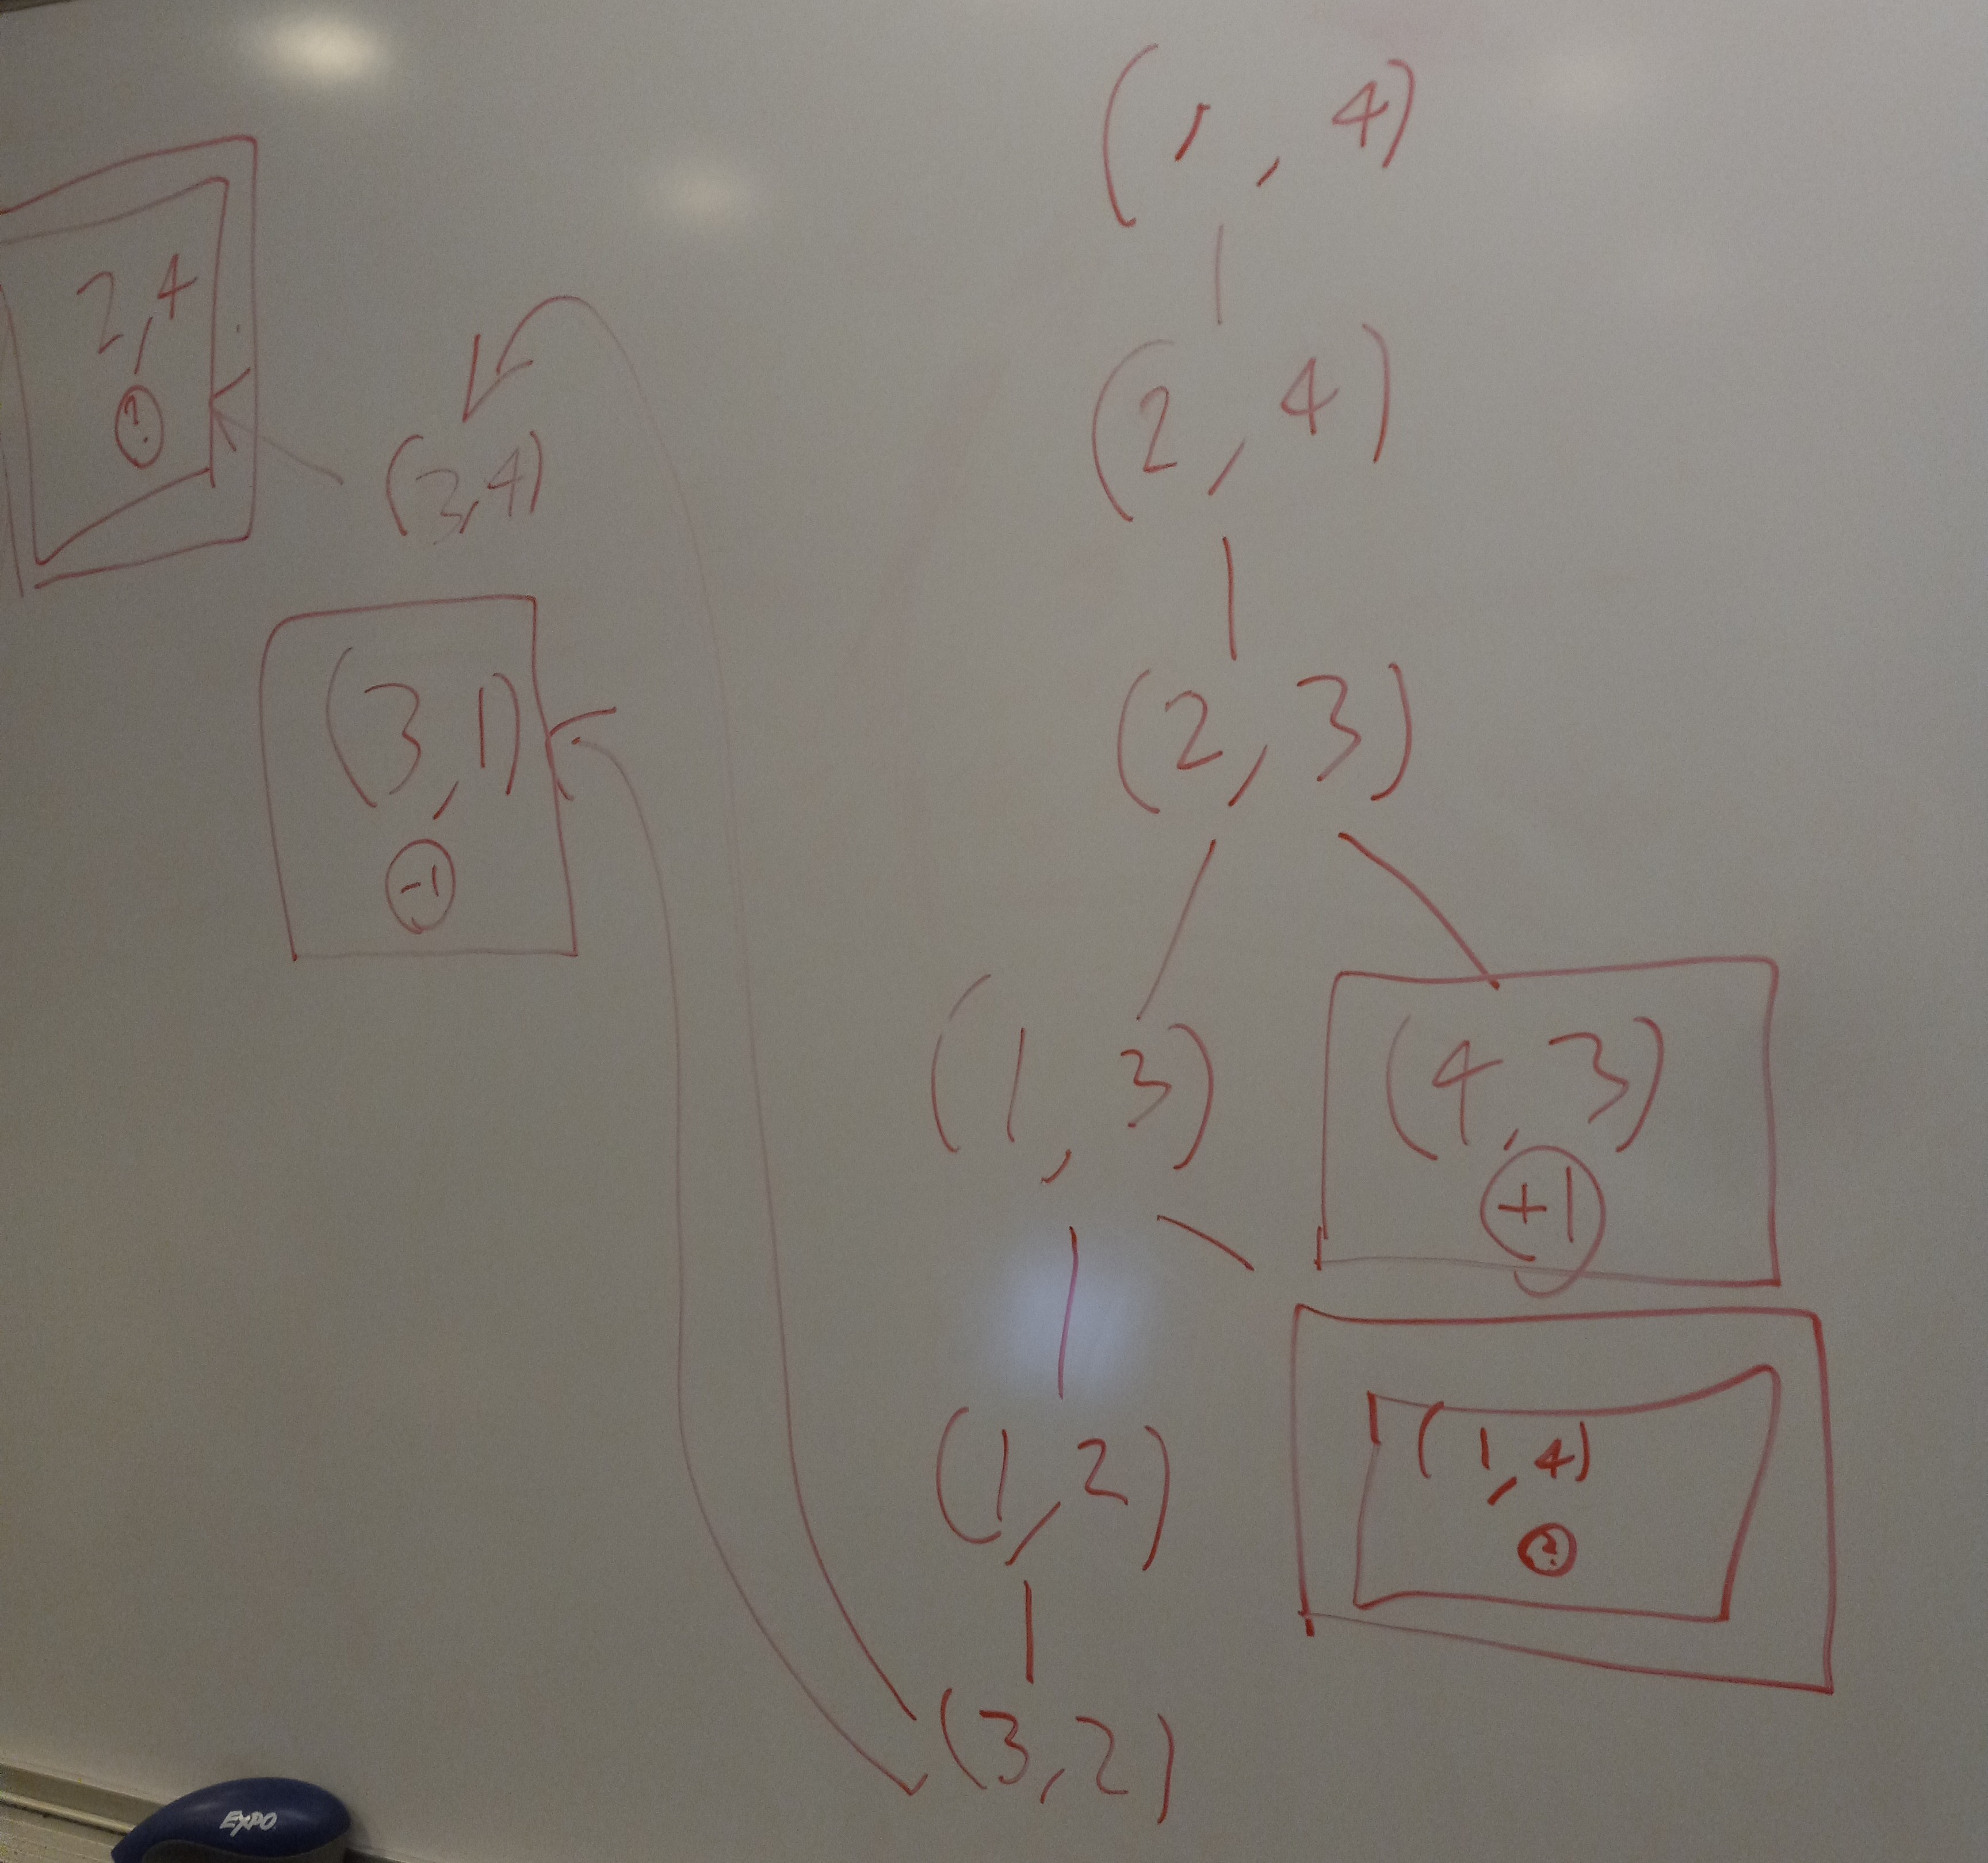 (1, 4)
(2, 4)
(2, 3)
(1, 3)
(4, 3)
+1
(1, 2)
(1, 4)
?
(3, 2)
(3,4)
(3, 1)
-1
2, 4
?
EXPO